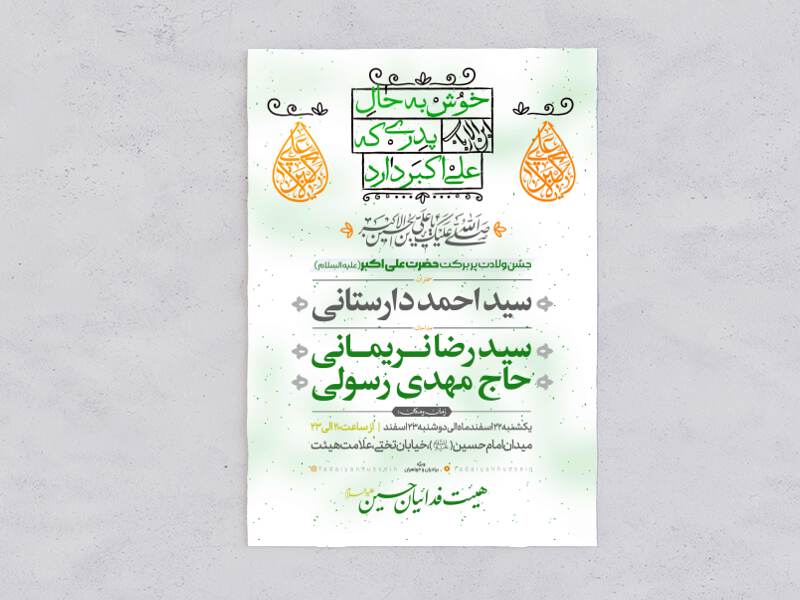 خوش به حال
پدری که
علی اکبر دارد
صلی الله علیک یا علی بن الحسین الاکبر
جشن ولادت پر برکت حضرت علی اکبر (علیه السلام)
سید احمد دارستانی
سید رضا نریمانی
حاج مهدی رسولی
زمان و مکان:
یکشنبه ۲۲ اسفندماه الی دوشنبه ۲۳ اسفند | از ساعت ۲۰ الی ۲۳
میدان امام حسین، خیابان تختی، علامت هیئت
fadaiyanhussein ویژه برادران و خواهران fadaiyanhosein
هیئت فدائیان حسین